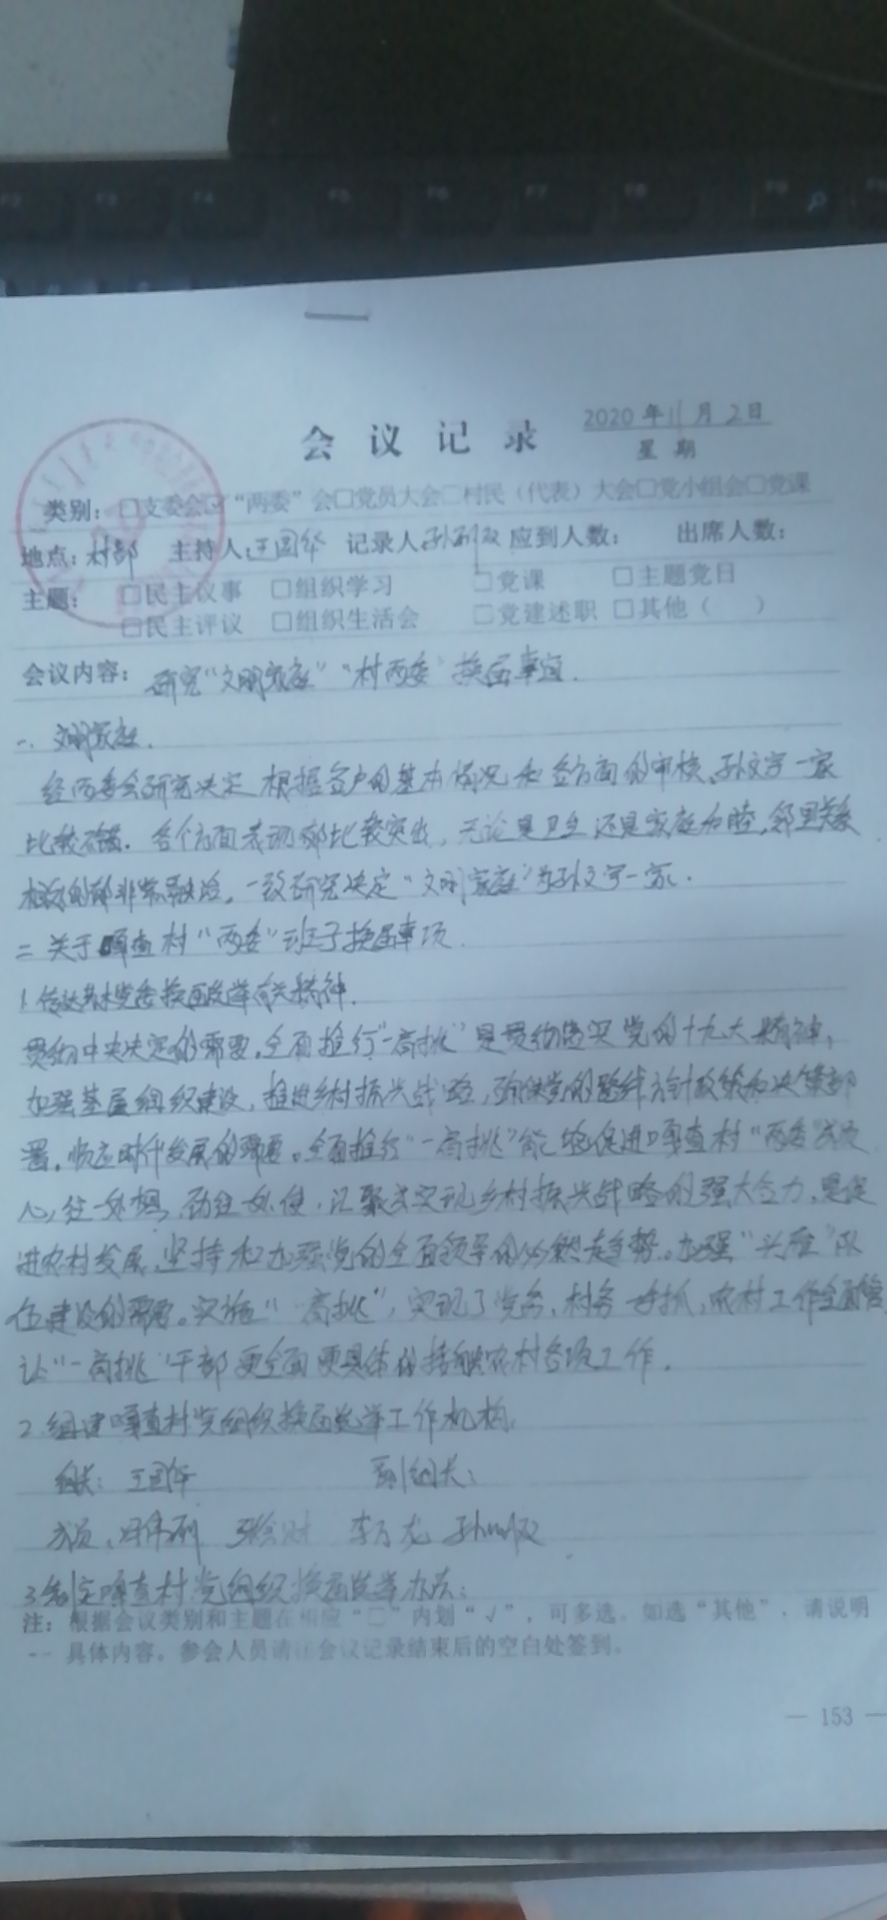 会议记录
2020年11月2日
星期
类别：□支委会☑“两委”会□党员大会□村民（代表）大会□党小组会□党课
地点：村部 主持人：王国华 记录人 应到人数： 出席人数：
主题： □民主议事 □组织学习 □党课 □主题党日
□民主评议 □组织生活会 □党建述职 □其他（ ）
会议内容： 研究“文明家庭”“村两委”换届事宜.
一. 文明家庭.
经两委会研究决定 根据各户的基本情况和各方面的审核、孙文字一家
比较 各个方面表现都比较突出，无论是卫生还是家庭和睦，邻里关系
的都非常融洽，一致研究决定“文明家庭”为孙文字一家.
二 关于嘎查村“两委”班子换届事项.
1.传达 党委换届选举有关精神.
贯彻中央决定的需要，全面推行“一肩挑”是贯彻落实党的十九大精神，
加强基层组织建设，推进乡村振兴战略，确保党的路线方针政策和决策部
署，顺应时代发展的需要。全面推行“一肩挑”能够促进嘎查村“两委”成员
心往一处想，劲往一处使，汇聚成实现乡村振兴战略的强大合力，是促
进农村发展，坚持和加强党的全面领导的必然趋势。加强“头雁”队
伍建设的需要。实施“一肩挑”，实现了党务、村务一手抓，农村工作全面管
让“一肩挑”干部更全面更具体的接触农村各项工作.
2.组建嘎查村党组织换届选举工作机构.
组长：王国华 副组长：
成员： 李万龙
3.制定嘎查村党组织换届选举办法：
注：根据会议类别和主题在相应“□”内划“√”，可多选。如选“其他”，请说明
具体内容。参会人员请在会议记录结束后的空白处签到。
— 153 —